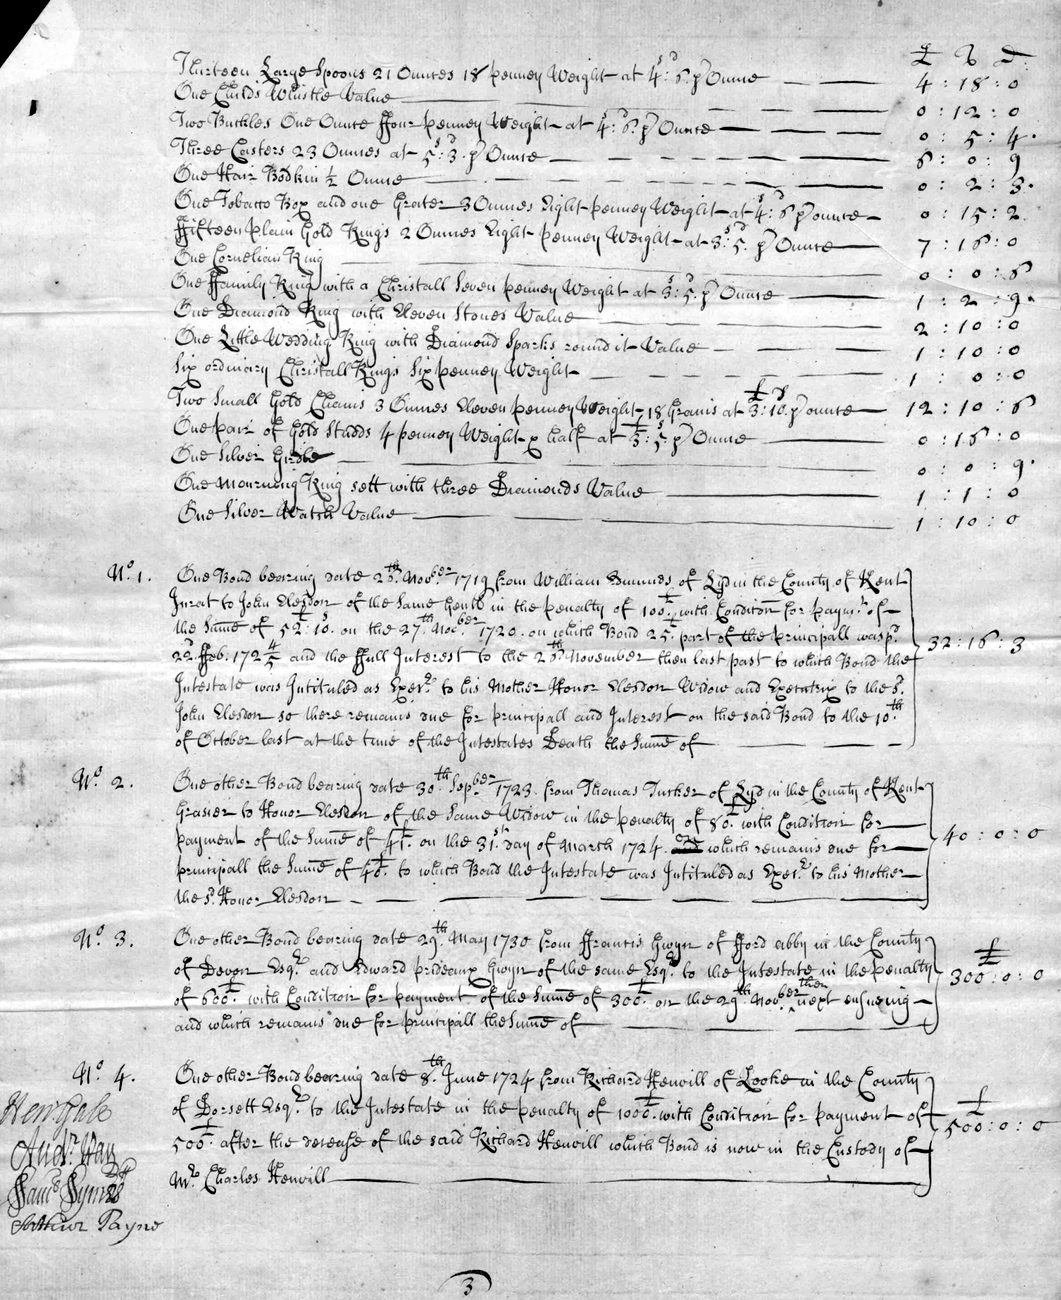 £ s D
Thirteen Large Spoons 21 Ounces 18 penney Weight at 4s: 6d. pr Ounce 4 : 18 : 0
One Childs Whistle Value 0 : 12 : 0
Two Buckles One Ounce ffour penney Weight at 4s: 6d. pr Ounce 0 : 5 : 4.
Three Casters 23 Ounces at 5s: 3d. pr Ounce 6 : 0 : 9
One Hair Bodkin ½ Ounce 0 : 2 : 3.
One Tobacco Box and one Grater 3 Ounces Eight penney Weight at 4s: 6d pr ounce 0 : 15 : 2.
ffifteen plain Gold Rings 2 Ounces Eight penney Weight at 3: 5. pr Ounce 7 : 16 : 0
One Cornelian Ring 0 : 0 : 6
One ffamily Ring with a Christall Seven penney Weight at 3: 5. pr Ounce 1 : 2 : 9.
One Diamond Ring with Eleven Stones Value 2 : 10 : 0
One Little Wedding Ring with Diamond Sparks round it Value 1 : 10 : 0
Six ordinary Christall Rings Six penney Weight 1 : 0 : 0
Two Small Gold Chains 3 Ounces Eleven penney Weight 18 Grains at £3: 10s. pr ounce 12 : 10 : 6
One pair of Gold Studds 4 penney Weight & half at £3: 5s. pr Ounce 0 : 16 : 0
One Silver Girdle 0 : 0 : 9.
One Mourning Ring sett with three Diamonds Value 1 : 1 : 0
One Silver Watch Value 1 : 10 : 0
No. 1. One Bond bearing date 26th. Novber 1719 from William Edmunds of Lyd in the County of Kent
Jurat to John Elesdon of the Same Gent in the penalty of 100£. with Condition for paymt. of
the Sume of 52£: 10s. on the 27th Novber. 1720. on which Bond 25£. part of the principall was pd.
22d. ffeb. 172 4/5 and the ffull Interest to the 26th. November then last past to which Bond the
Intestate was Intituled as Exer. to his Mother Honor Elesdon Widow and Executrix to the sd.
John Elesdon so there remains due for principall and Interest on the said Bond to the 10th.
of October last at the time of the Intestates Death the Sume of 32 : 16 : 3
No. 2. One other Bond bearing date 30th. Sepber. 1723. from Thomas Tucker of Lyd in the County of Kent
Grasier to Honor Elesdon of the Same Widow in the penalty of 80£. with Condition for
payment of the Sume of 41£. on the 31st. day of March 1724. on which remains due for
principall the Sume of 40£. to which Bond the Intestate was Intituled as Exer. to his Mother
the sd. Honor Elesdon 40 : 0 : 0
No. 3. One other Bond bearing date 29th. May 1730 from ffrancis Gwyn of fford abby in the County
of Devon Esqr. and Edward prideaux Gwyn of the same Esqr. to the Intestate in the penalty
of 600£. with Condition for payment of the Sume of 300£. on the 29th. Novber. then next ensueing
and which remains due for principall the Sume of £300 : 0 : 0
No. 4. One other Bond bearing date 8th. June 1724 from Richard Henvill of Looke in the County
of Dorsett Esqr. to the Intestate in the penalty of 1000£. with Condition for payment of
500£. after the decease of the said Richard Henvill which Bond is now in the Custody of
Mr. Charles Henvill £500 : 0 : 0
Hen: Gale
Andr. Hay
Saml. Symes
Arthur Payne
3